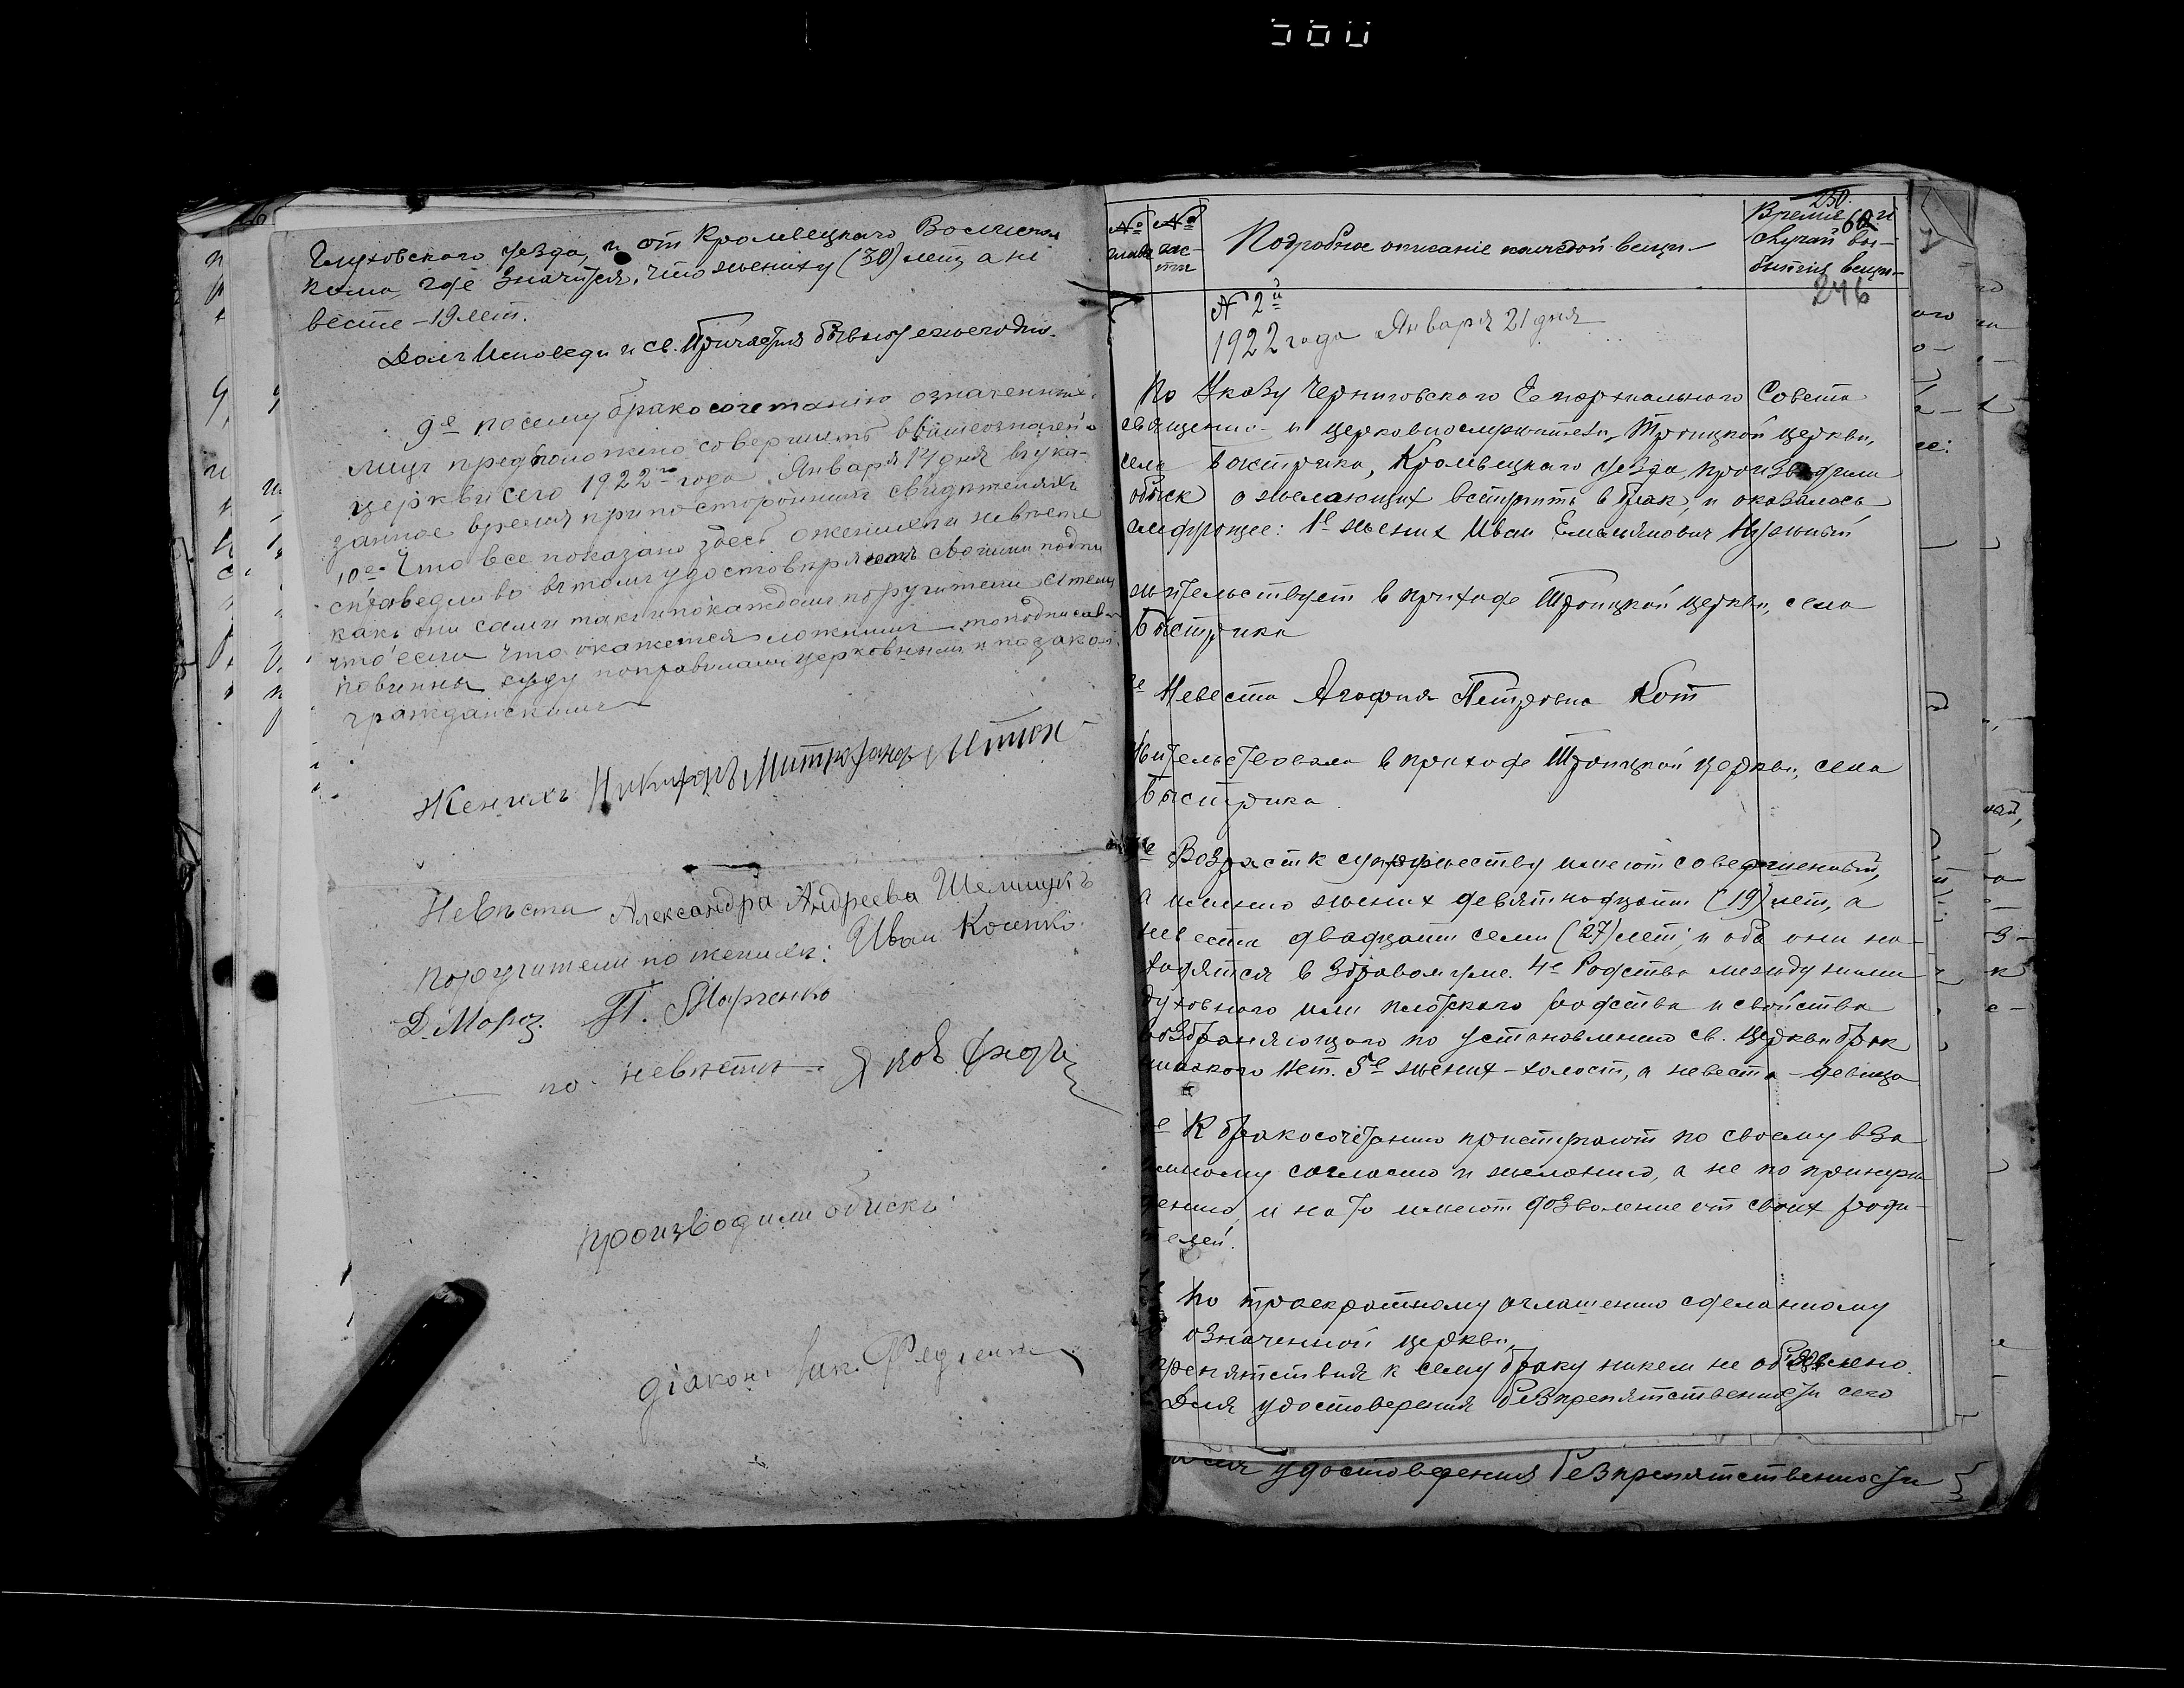 560
Глуховского уезда, и от Кролевецкого Волиспол
кома, где значится, что жениху (30) лет, а не
весте - 19 лет.
Долг Исповеди и св. Причастия бывают ежегодно.
9е посему бракосочетанію означенныхъ
лицъ предположено совершить въ вышеозначен
церкви сего 1922го года Января 14 дня въ ука-
занное время при постороннихъ свидетеляхъ
10е Что все показано здесь о женихе и невесте
справедливо въ томъ удостоверяемъ своими подпи
какъ они сами такъ и по каждомъ поручители съ тем
что если что окажется ложнымъ, то подписав
повинны суду по правиламъ церковнымъ и по закон
гражданскимъ
Женихъ Никифоръ Митрофановъ
Невѣста Александра Андреева Шемшукъ
Поручители по женихѣ: Иван Косенко
Д. Мороз. П. Марченко
по невѣсте Яков
Производили обыскъ:
діаконъ
230.
№ № Подробное описаніе каждой вещи Время и
глава час- случай вы-
ти бытія вещи
60
246
N 2й
1922 года Января 21 дня
По Указу Черниговского Епархиального Совета
священно- и церковнослужители Троицкой церкви,
села Быстрика, Кролевецкого уезда, производили
обыск о желающих вступить в брак, и оказалось
следующее: 1е жених Иван Емельянович Нужный
жительствует в приходе Троицкой церкви, села
Быстрика
2е Невеста Агафия Петровна Кот
Жительствовала в приходе Троицкой церкви, села
Быстрика.
3е Возраст к супружеству имеют совершенный,
а именно жених девятнадцати (19) лет, а
невеста двадцати семи (27) лет, и оба они на-
ходятся в здравом уме. 4е Родства между ними
духовного или плотского родства и свойства
возбраняющого по установлению св. церкви брак
никакого нет. 5е жених - холост, а невеста - девица
е К бракосочетанию приступают по своему вза
имному согласию и желанию, а не по принуж-
дению, и на то имеют дозволение от своих роди-
телей.
По троекратному оглашению сделанному
означенной церкви,
препятствия к сему браку никем не объявлено.
Для удостоверения безпрепятственности сего
Для удостоверения безпрепятственности